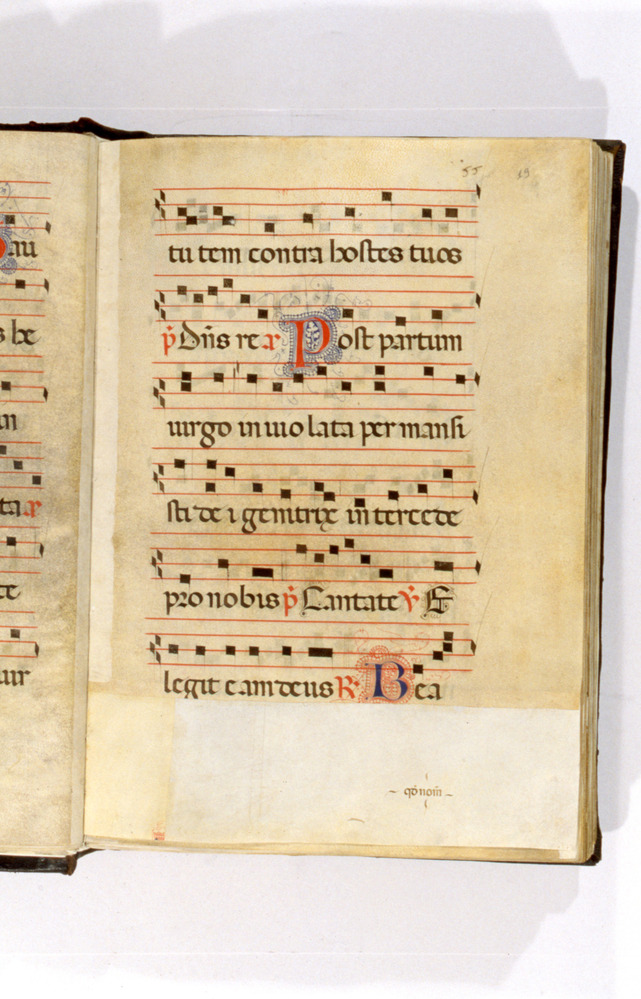 55 19
tu tem contra hostes tuos
p̄ Dn̄s re a᷒ Post partum
uirgo inuio lata per mansi
sti de i genitrix in tercede
pro nobis p̄ Cantate ℣ E
legit eam deus ℟ Bea
qd̄ nom̄
au
s be
ta a᷒
te
uir